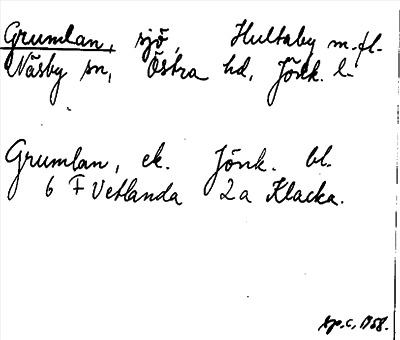 Grumlan, sjö, Hultaby m.fl.
Näsby sn, Östra hd, Jönk. l.
Grumlan, ek. Jönk. bl.
6 F Vetlanda 2a Klacka.
1958.